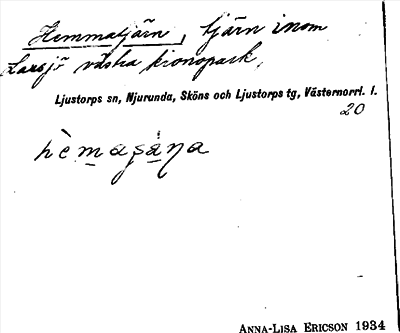 Hemmatjärn, tjärn inom
Larsjö västra kronopark,
Ljustorps sn, Njurunda, Sköns och Ljustorps tg, Västernorrl. l.
20
ANNA-LISA ERICSON 1934